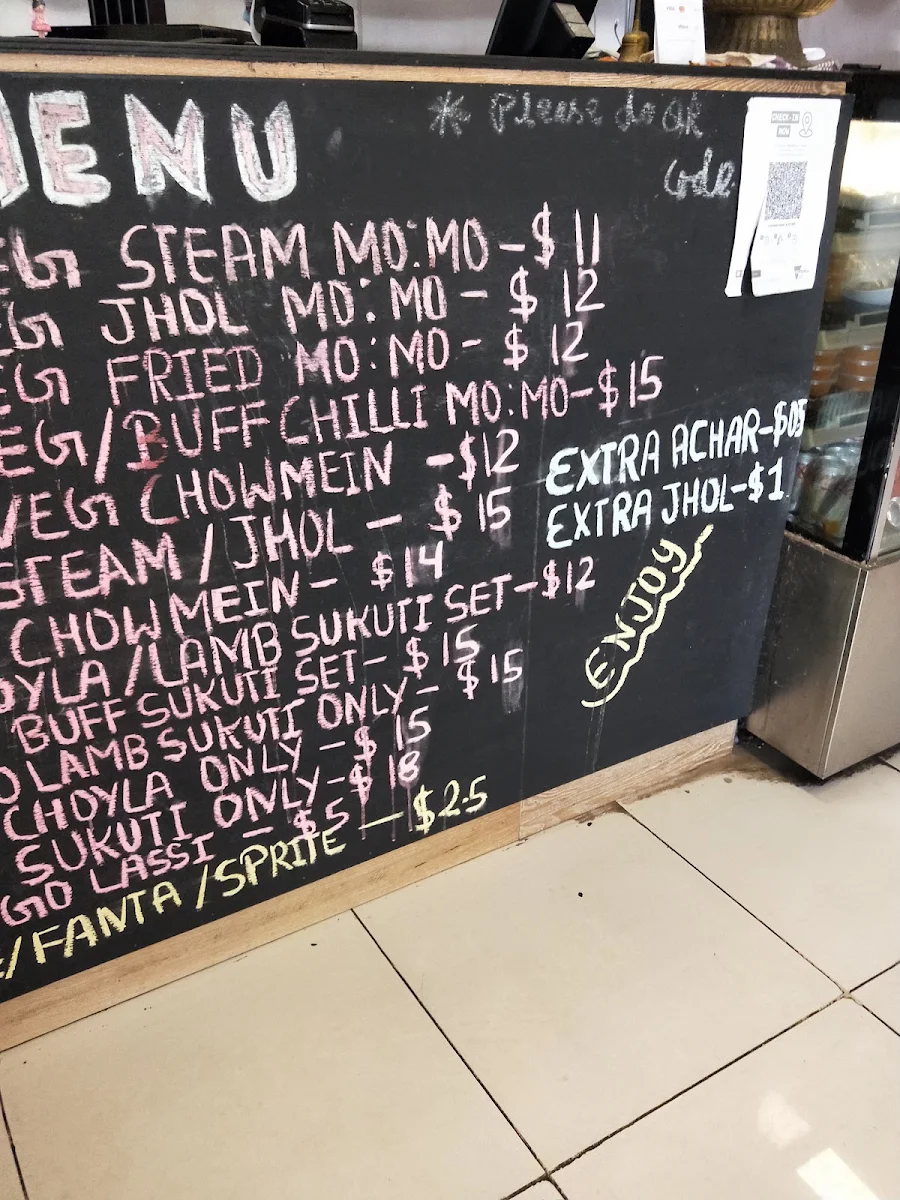 MENU
* Please do QR
Code
CHECK-IN
NOW
EG STEAM MO:MO - $ 11
EG JHOL MO:MO - $ 12
EG FRIED MO:MO - $ 12
EG/BUFF CHILLI MO:MO - $15
VEG CHOWMEIN - $12
STEAM / JHOL - $ 15
CHOWMEIN - $14
OYLA / LAMB SUKUTI SET - $12
BUFF SUKUTI SET - $ 15
LAMB SUKUTI ONLY - $ 15
CHOYLA ONLY - $ 15
SUKUTI ONLY - $ 18
GO LASSI - $5
/FANTA /SPRITE - $2.5
EXTRA ACHAR-$
EXTRA JHOL-$1
ENJOY